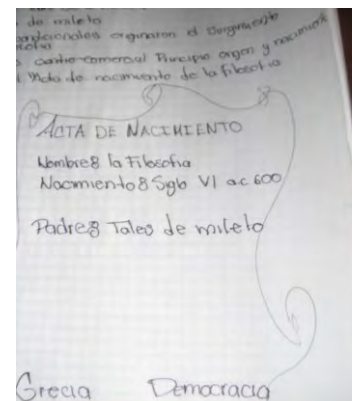 de mileto
condicionales originaron el Surgimiento
centro comercial Principio origen y nacimiento
Acta de nacimiento de la Filosofia
ACTA DE NACIMIENTO
Nombre: la Filosofia
Nacimiento: Siglo VI a.c 600
Padre: Tales de mileto
Grecia Democracia